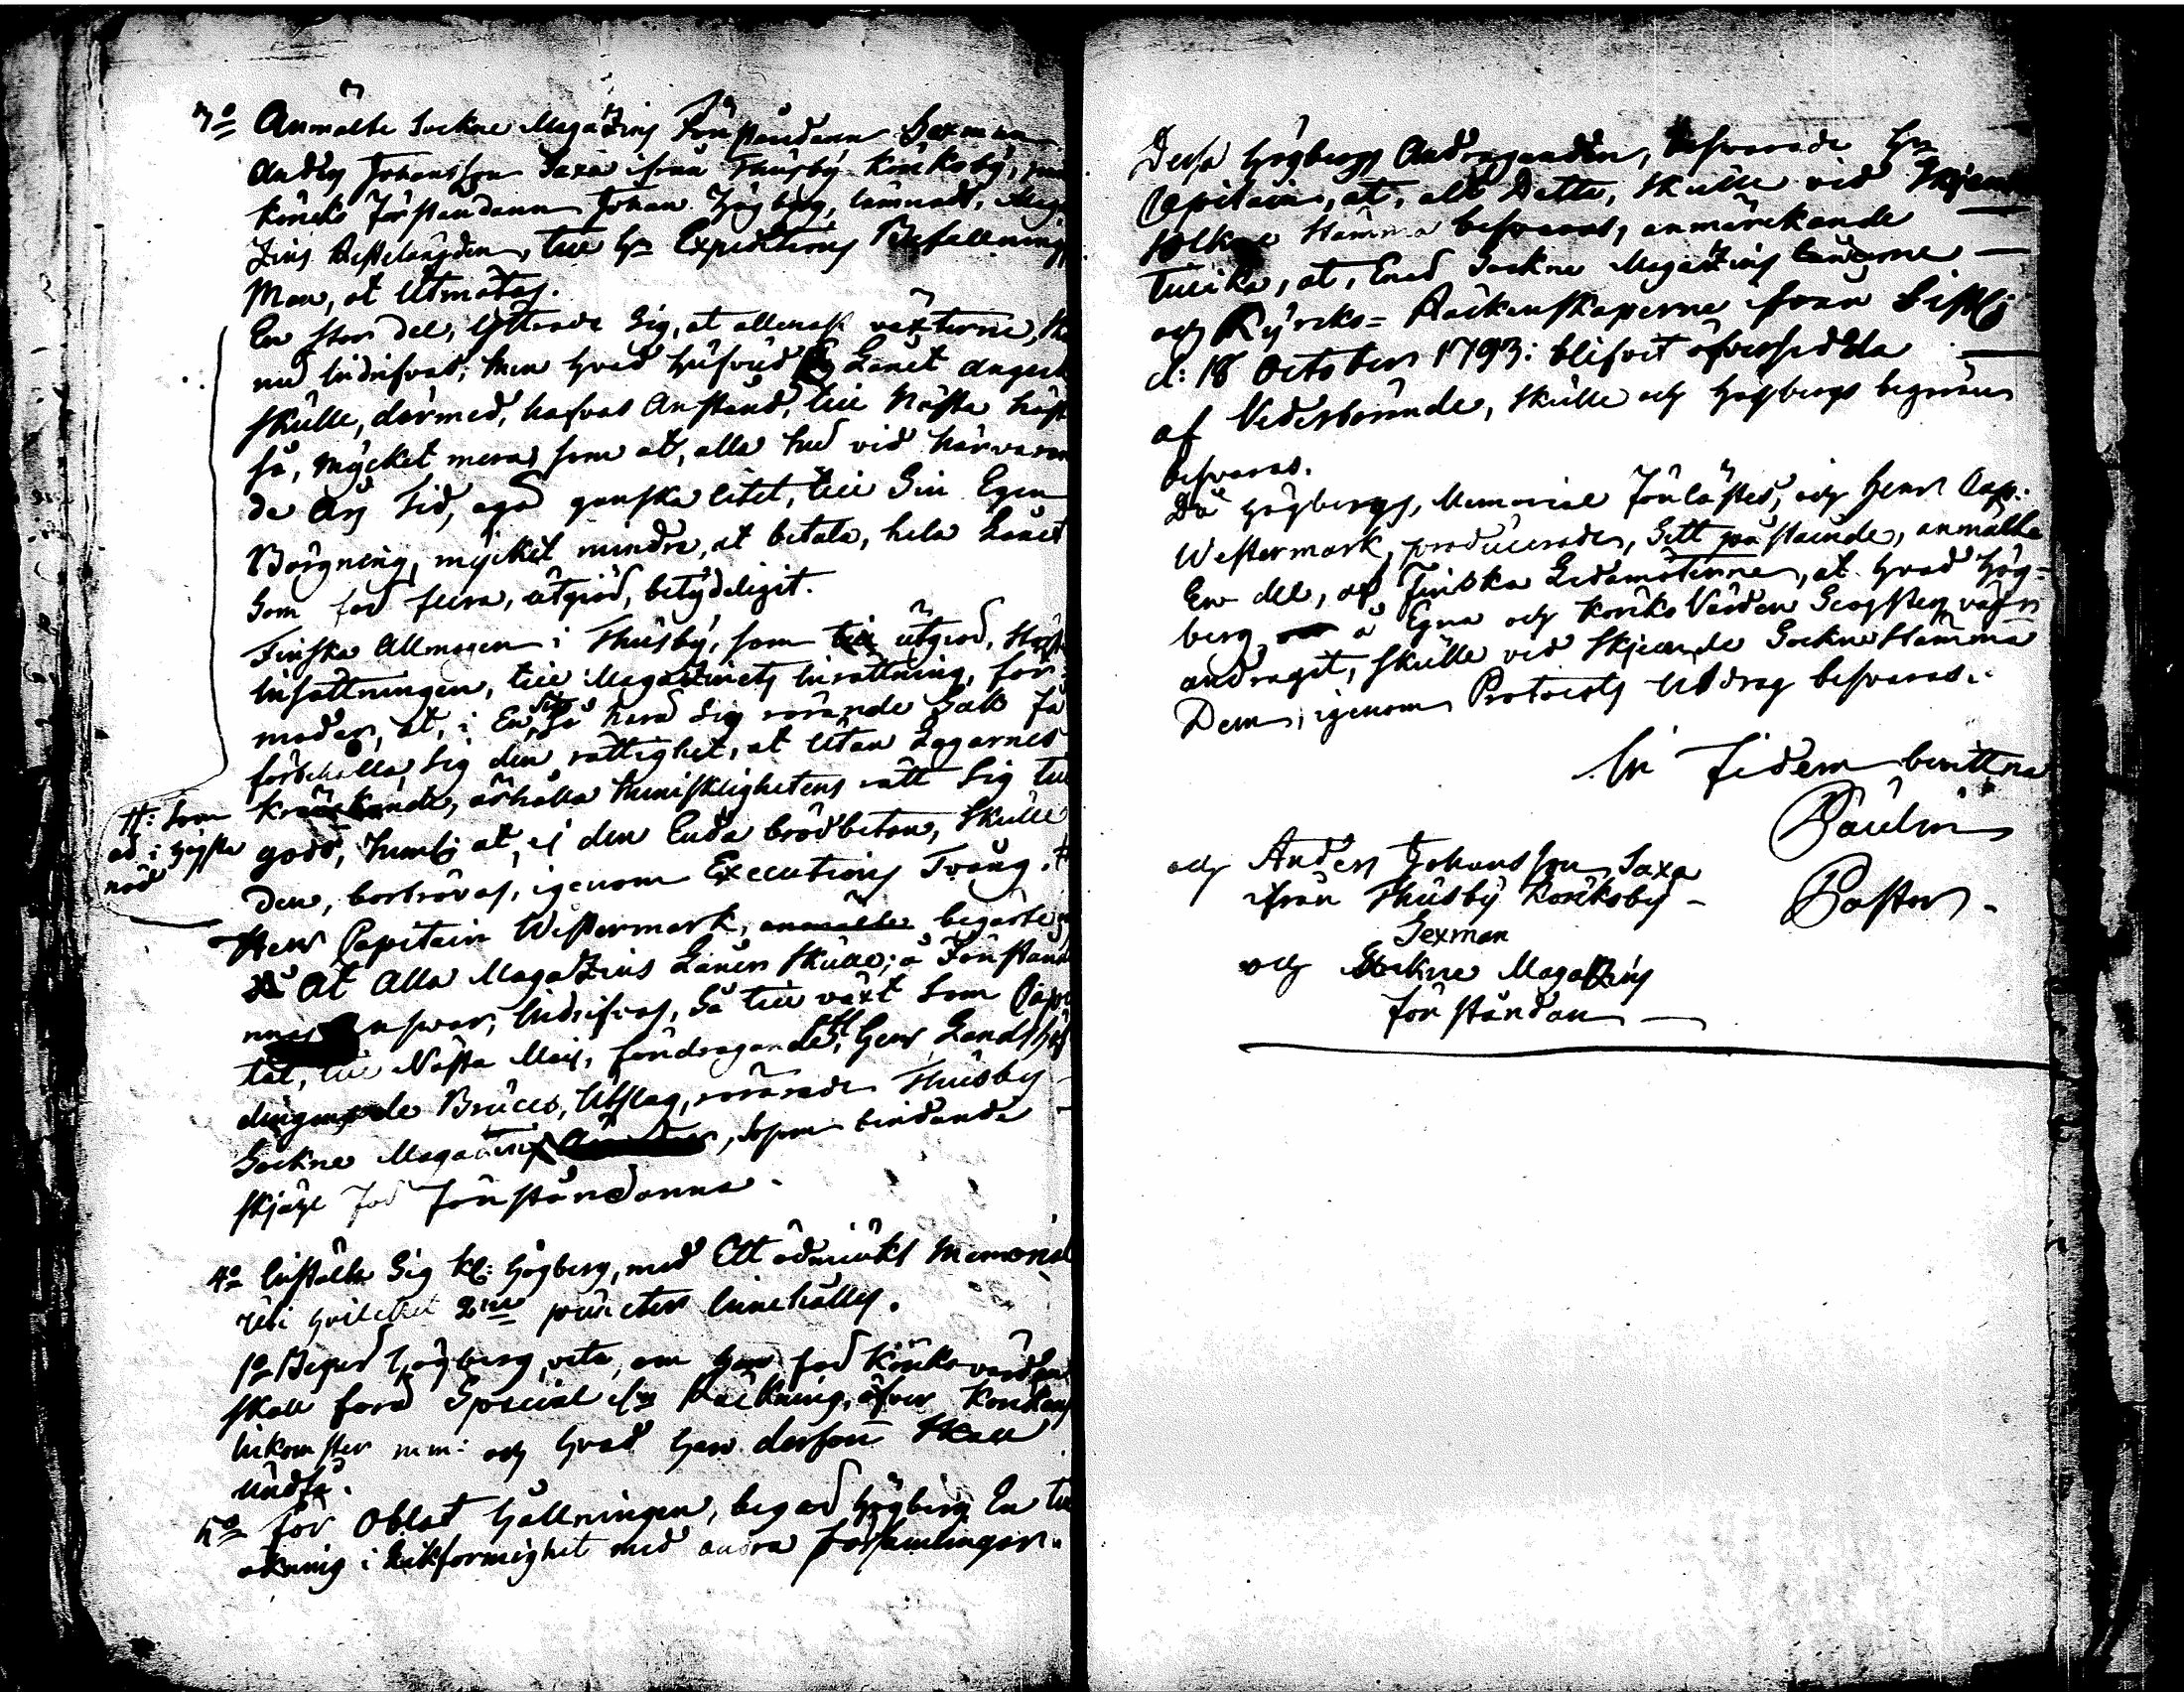 3o Anmälte Sockne Magazins Förståndaren Sexman
Anders Johansson Saxa ifrån Thusby Körkoby,
körcko förståndaren Johan Högberg, lämnadt, Maga
Zins Restelängden, till Hr Expeditions Befallnings
Man, at Utmätas.
En stor del, yttrade Sig, at allenast växterne,
nu indrifvas; men hvad hufvud Lånet angeck
skulle, därmed, hafvas Anstånd, till Nästa höst
så, mycket mera, som at, alla hud vid närvaran
de Års tid, ega ganska litet, till Sin Egen
Börgning, mycket mindre, at betala, hela Lånet
Som för flera, utgiöd, betydeligit.
Finska Allmogen i Thusby, som utgiöd, största
insättningen, till Magazinets inrättning, för=
modar, at, i En, så hård Sig rörande Sak få
förbehålla, Sig den rättighet, at Utan Lagarnes
kränkande, ärhålla Menisklighetens rätt Sig till
#: Som ad i högsta nöd
godo, Neml: at, ej den Enda brödbetan, Skulle
dem, bortrövas, igenom Executions Tvång. #
Herr Capitain Westermark, anmälte begärte
At Alla Magazins Lånen Skulle, å Förstånda
nnas answar, Indrifvas, Så till växt Som Capi
tal, till Nästa Maij, föredragande, Herr Landshöf
dingen de Bruces, Utslag, rörande Thusby
Sockne Magazin, Såsom bindande
skjäl för förståndarne.
4o Instälte Sig Kl: Högberg, med Ett ödmiukt Memorial
uti hvilcket 2ne puncter innehålles.
1o Begärd Högberg, veta, om han för Körcko värden
skall föra Special Räkning, öfver Körckans
inkomster m.m: och hvad han derföre Skall
undfå.
5o för Oblat Hållningen, begärd Högberg En til
ökning i Likformighet med andra församlingar.
Dessa Högbergs Andraganden, besvarade Hr
Capitain, at, alt Detta, Skulle vid Skjeende
Sockne Stämma besvaras, anmärckande
tillika, at, Enär Sockne Magazins Lånerne
och Kyrcko= Räckenskaperne från Sistl:
d: 18 October 1793: blifvit öfversedda
af Vederbörande, Skulle och Högbergs begäran
besvaras.
Då Högbergs, Memorial Förlästes, och Herr Cap:
Westermark, producerade, Sitt påstående, anmälte
En del, af Finska Ledamöterne, at hvad Hög=
berg å Egna och Körcko Värden Georgs vägn
andragit, skulle vid Skjeende Sockne Stämma
Dem, igenom Protocolls Utdrag besvaras.
In Fidem bevittna
Paulin
Pastor.
och Anders Johansson Saxa
ifrån Thusby Körckoby
Sexman
och Sockne Magazins
förståndare